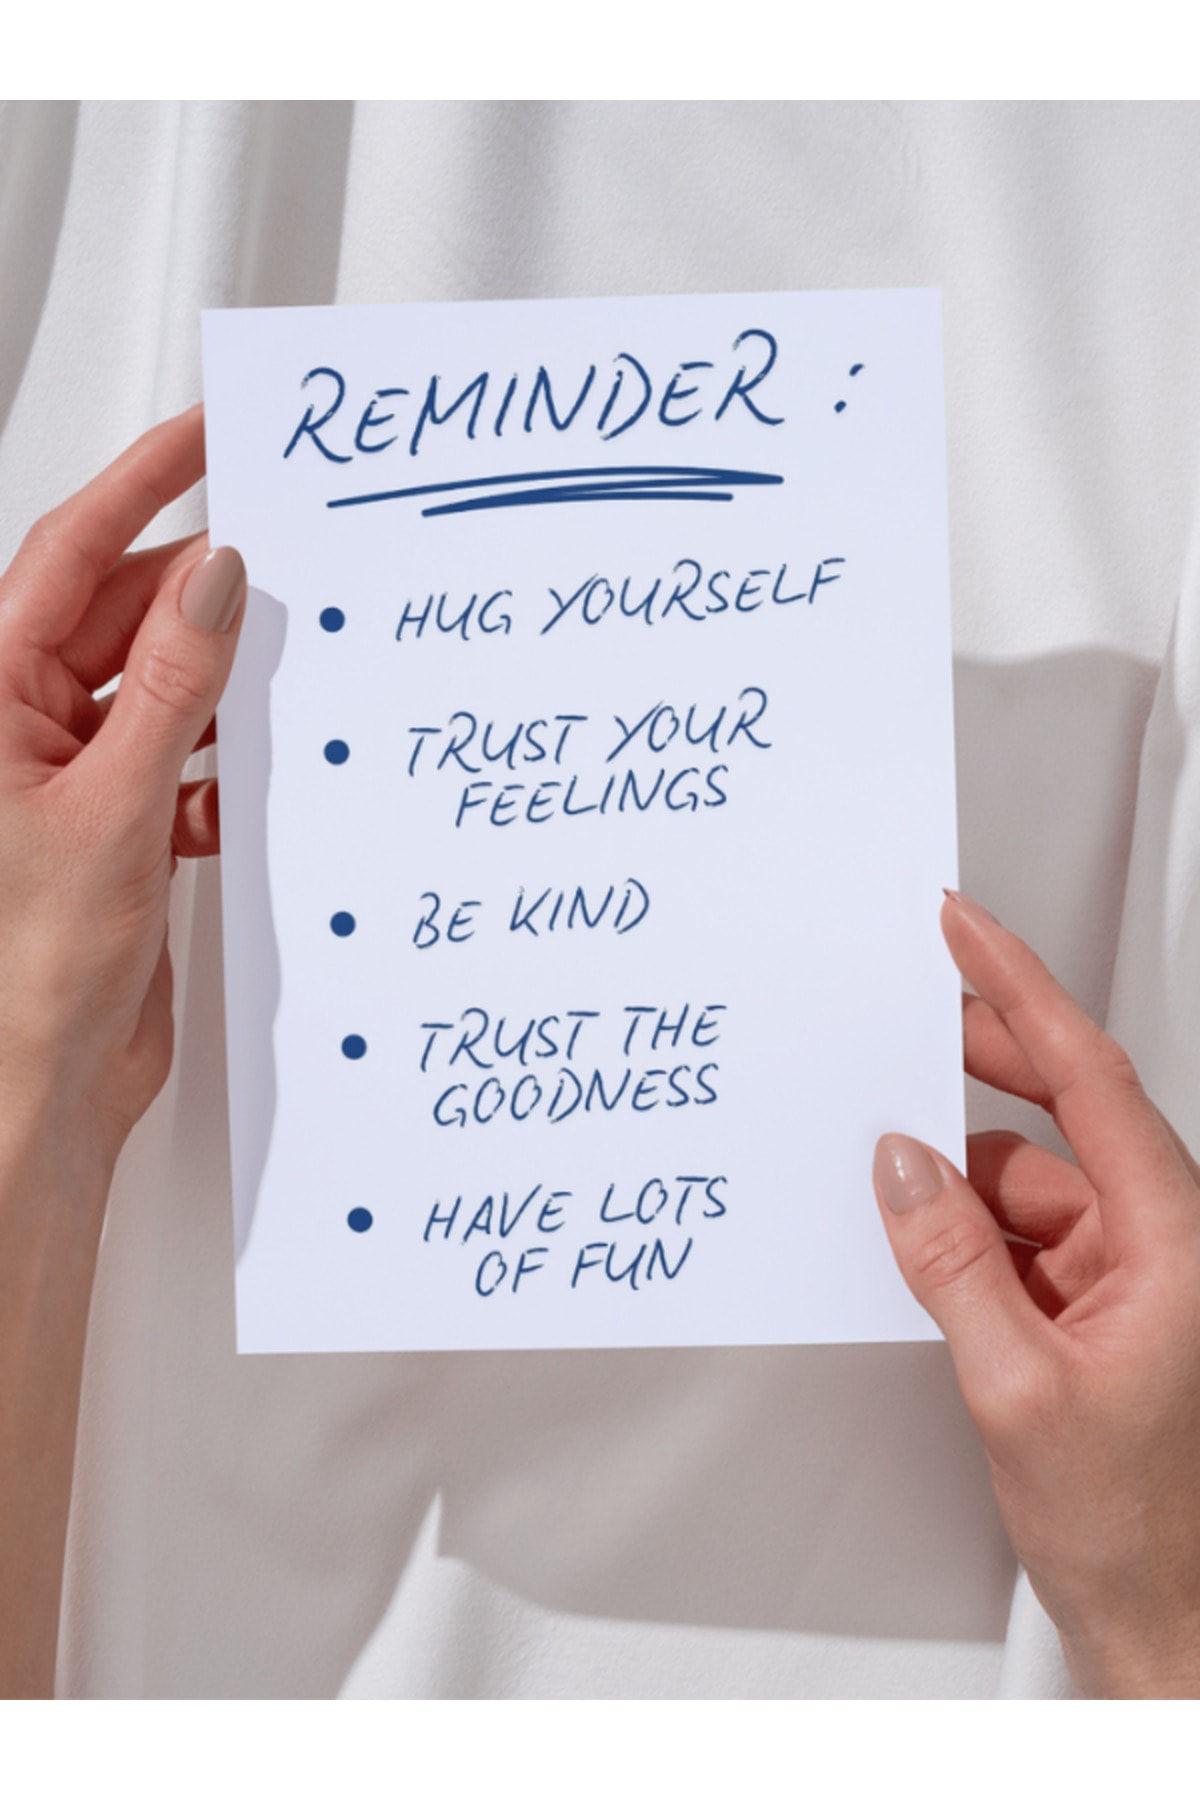 REMINDER :
• HUG YOURSELF
• TRUST YOUR
FEELINGS
• BE KIND
• TRUST THE
GOODNESS
• HAVE LOTS
OF FUN